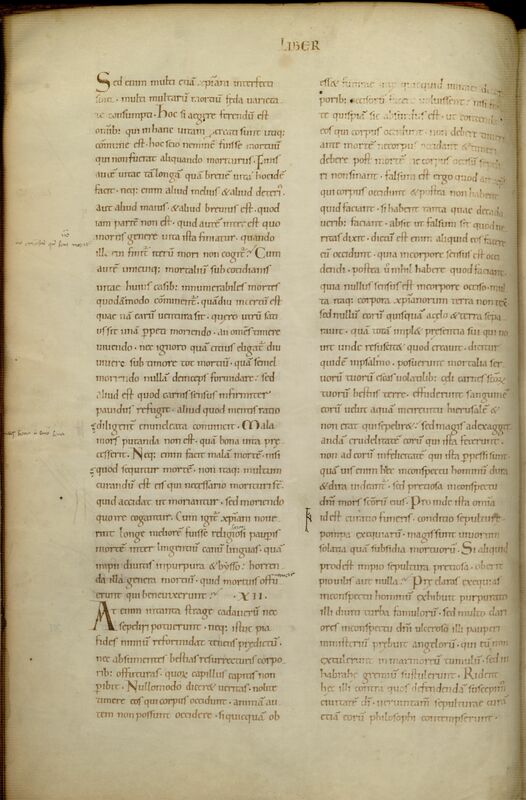 LIBER
Sed enim multi etiā xp̄iani interfecti
sunt. multi multarū mortiū feda varieta
te consumpti. Hoc si aegre ferendū est
om̄ib; qui in hanc uitam creati sunt utiq;
cōmune est. hoc scio neminē fuisse mortuū
qui non fuerat aliquando moriturus. Finis
autē uitae tā longā quā breuē uitā hoc idē
facit. neq; enim aliud melius & aliud deteri.
aut aliud maius, & aliud breuius est. quod
iam pariter non est. quid autē interest quo
mortis genere uita ista finiatur. quando
ille cui finit̄ iterū mori non cogit̄? Cum
autē unicuiq; mortaliū sub cotidianis
uitae huius casib; innumerabiles mortes
quodāmodo cōminent̄. quādiu incertū est
quae nā earū uentura sit. quero utrū sati
us sit unā ppeti moriendo. an om̄es timere
uiuendo. nec ignoro quā citius eligat̄ diu
uiuere sub timore tot mortiū. quā semel
moriendo nullā deinceps formidare. sed
aliud est quod carnis sensus infirmiter
pauidus refugit. aliud quod mentis ratio
diligent̄ enucleata conuincit. Mala
mors putanda non est. quā bona uita p̄ce
cesserit. Neq; enim facit malā mortē. nisi
quod sequitur mortē. non itaq; multum
curandū est eis qui necessario morituri st̄.
quid accidat ut moriantur. sed moriendo
quo ire cogantur. Cum igit̄ xp̄iani noue
rint longe meliorē fuisse religiosi paupis
mortē inter lingentiū canū linguas. quā
impii diuitis in purpura & bysso. horren
da illa genera mortiū. quid mortuis offu
erunt qui bene uixerunt? · XII ·
At enim in tanta strage cadauerū nec
sepeliri potuerunt. neq; istud pia
fides nimiū reformidat tenens predictū.
nec absumentes bestias resurrecturis corpo
rib; offuturas. quoꝝ capillus capitis non
pibit. Nullo modo diceret ueritas. nolite
timere eos qui corpus occidunt. animā au
tem non possunt occidere. si quicquā ob
esse futurae uitę quicquid inimici de cor
porib; occisorū facere uoluissent. nisi for
te quispiā sic absurdus est. ut contendat
eos qui corpus occidunt. non debere timeri
ante mortē. ne corpus occidant & timeri
debere post mortē. ne corpus occisū sepeli
ri non sinant. falsum est ergo quod ait
qui corpus occidunt & postea non habent
quid faciant. si habent tanta quae de cada
uerib; faciant. absit ut falsum sit quod ue
ritas dixit. dictū est enim aliquid eos facere
cū occidunt. quia in corpore sensus est occi
dendi. postea ū nihil habere quod faciant.
quia nullus sensus est in corpore occiso. mul
ta itaq; corpora xp̄ianorum terra non texit.
sed nullū eorū quisquā a cęlo & terra sepa
rauit. quā totā implet presentia sui qui no
uit unde resuscitet quod creauit. dicitur
quidē in psalmo. posuerunt mortalia ser
uorū tuorū escas uolatilib; cęli carnes scōꝝ
tuorū bestiis terre. effuderunt sanguinē
eorū uelut aquā in circuitu hierusalē &
non erat qui sepeliret. sed magis ad exagger
andā crudelitatē eorū qui ista fecerunt.
non ad eorū infelicitatē qui ista ppessi sunt.
quā uis enim hec in conspectu hominū dura
& dira uideant̄. sed preciosa in conspectu
dn̄i mors scōrū eius. Proinde ista omia
id est curatio funeris. conditio sepulturę
pompa exequiarū. magis sunt uiuorum
solatia quā subsidia mortuorū. Si aliquid
prodest impio sepultura preciosa. oberit
pio uilis aut nulla? Preclaras exequias
in conspectu hominū exhibuit purpurato
illi diuiti turba famulorū. sed multo clari
ores in conspectu dn̄i ulceroso illi pauperi
ministeriū prebuit angelorū. qui eū non
extulerunt in marmoreū tumulū. sed in
habrahę gremiū sustulerunt. Rident
hec illi contra quos defendendā suscepim;
ciuitatē di. ueruntam̄ sepulturae curā
etiā eorū philosophi contempserunt.